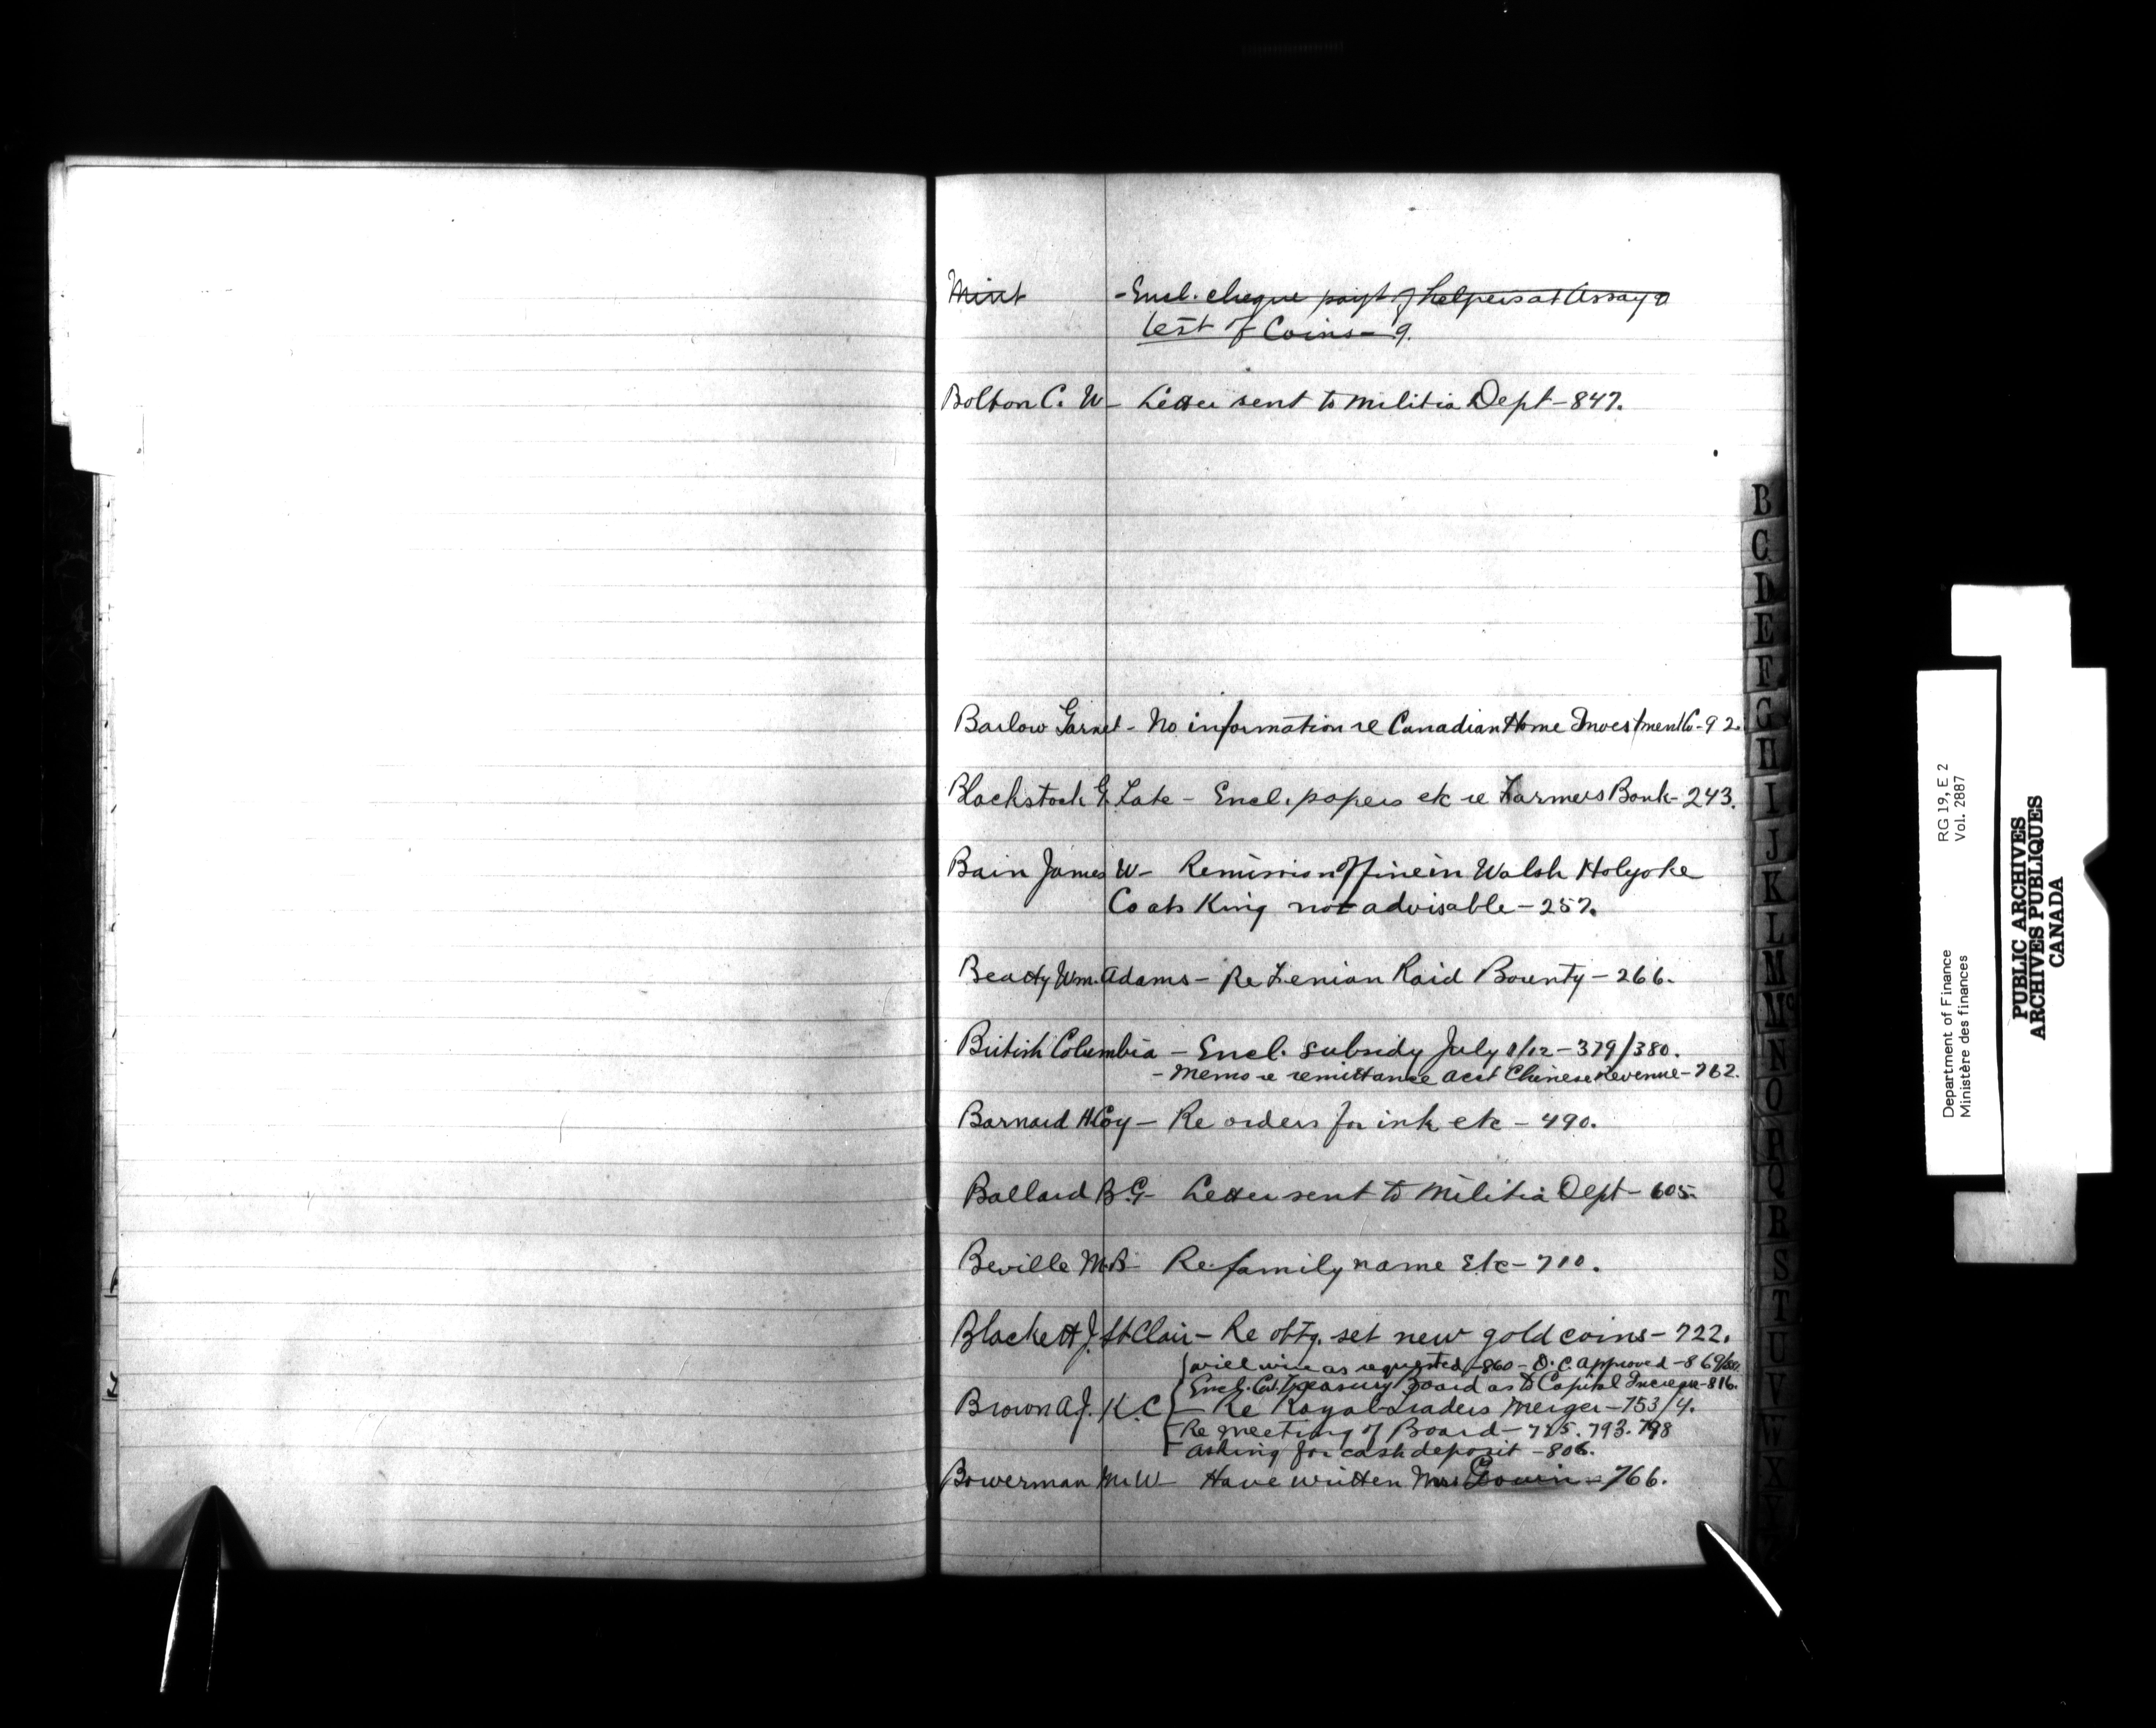 Mint - Encl. cheque payt of helpers at Assay &
test of Coins - 9.
Bolton C. W - Letter sent to Militia Dept - 847.
Barlow Garnet - No information re Canadian Home Investment Co - 92.
Blackstock G. Tate - Encl. papers etc re Farmers Bank - 243.
Bain James W - Remission of fine in Walsh Holyoke
Coats King not advisable - 257.
Beatty Wm. Adams - Re Fenian Raid Bounty - 266.
British Columbia - Encl. subsidy July 1/12 - 379/380.
- Memo re remittance acct Chinese Revenue - 762.
Barnard H Coy - Re orders for ink etc - 490.
Ballard B. G - Letter sent to Militia Dept - 605.
Beville M. B - Re family name Etc - 710.
Blackett J. St Clair - Re obtg. set new gold coins - 722.
will wire as requested - 860 - O. C. approved - 869/
Encl. Treasury Board as to Capital Increase - 816.
Brown A. J. K. C - Re Royal-Traders Merger - 753/4.
Re meeting of Board - 775. 793. 798
asking for cash deposit - 806.
Bowerman M. W - Have written Mrs - 766.
B
C
D
E
F
G
H
I
J
K
L
M
Mc
N
O
P
Q
R
S
T
U
V
W
X
Y
Department of Finance RG 19, E 2
Ministère des finances Vol. 2887
PUBLIC ARCHIVES
ARCHIVES PUBLIQUES
CANADA